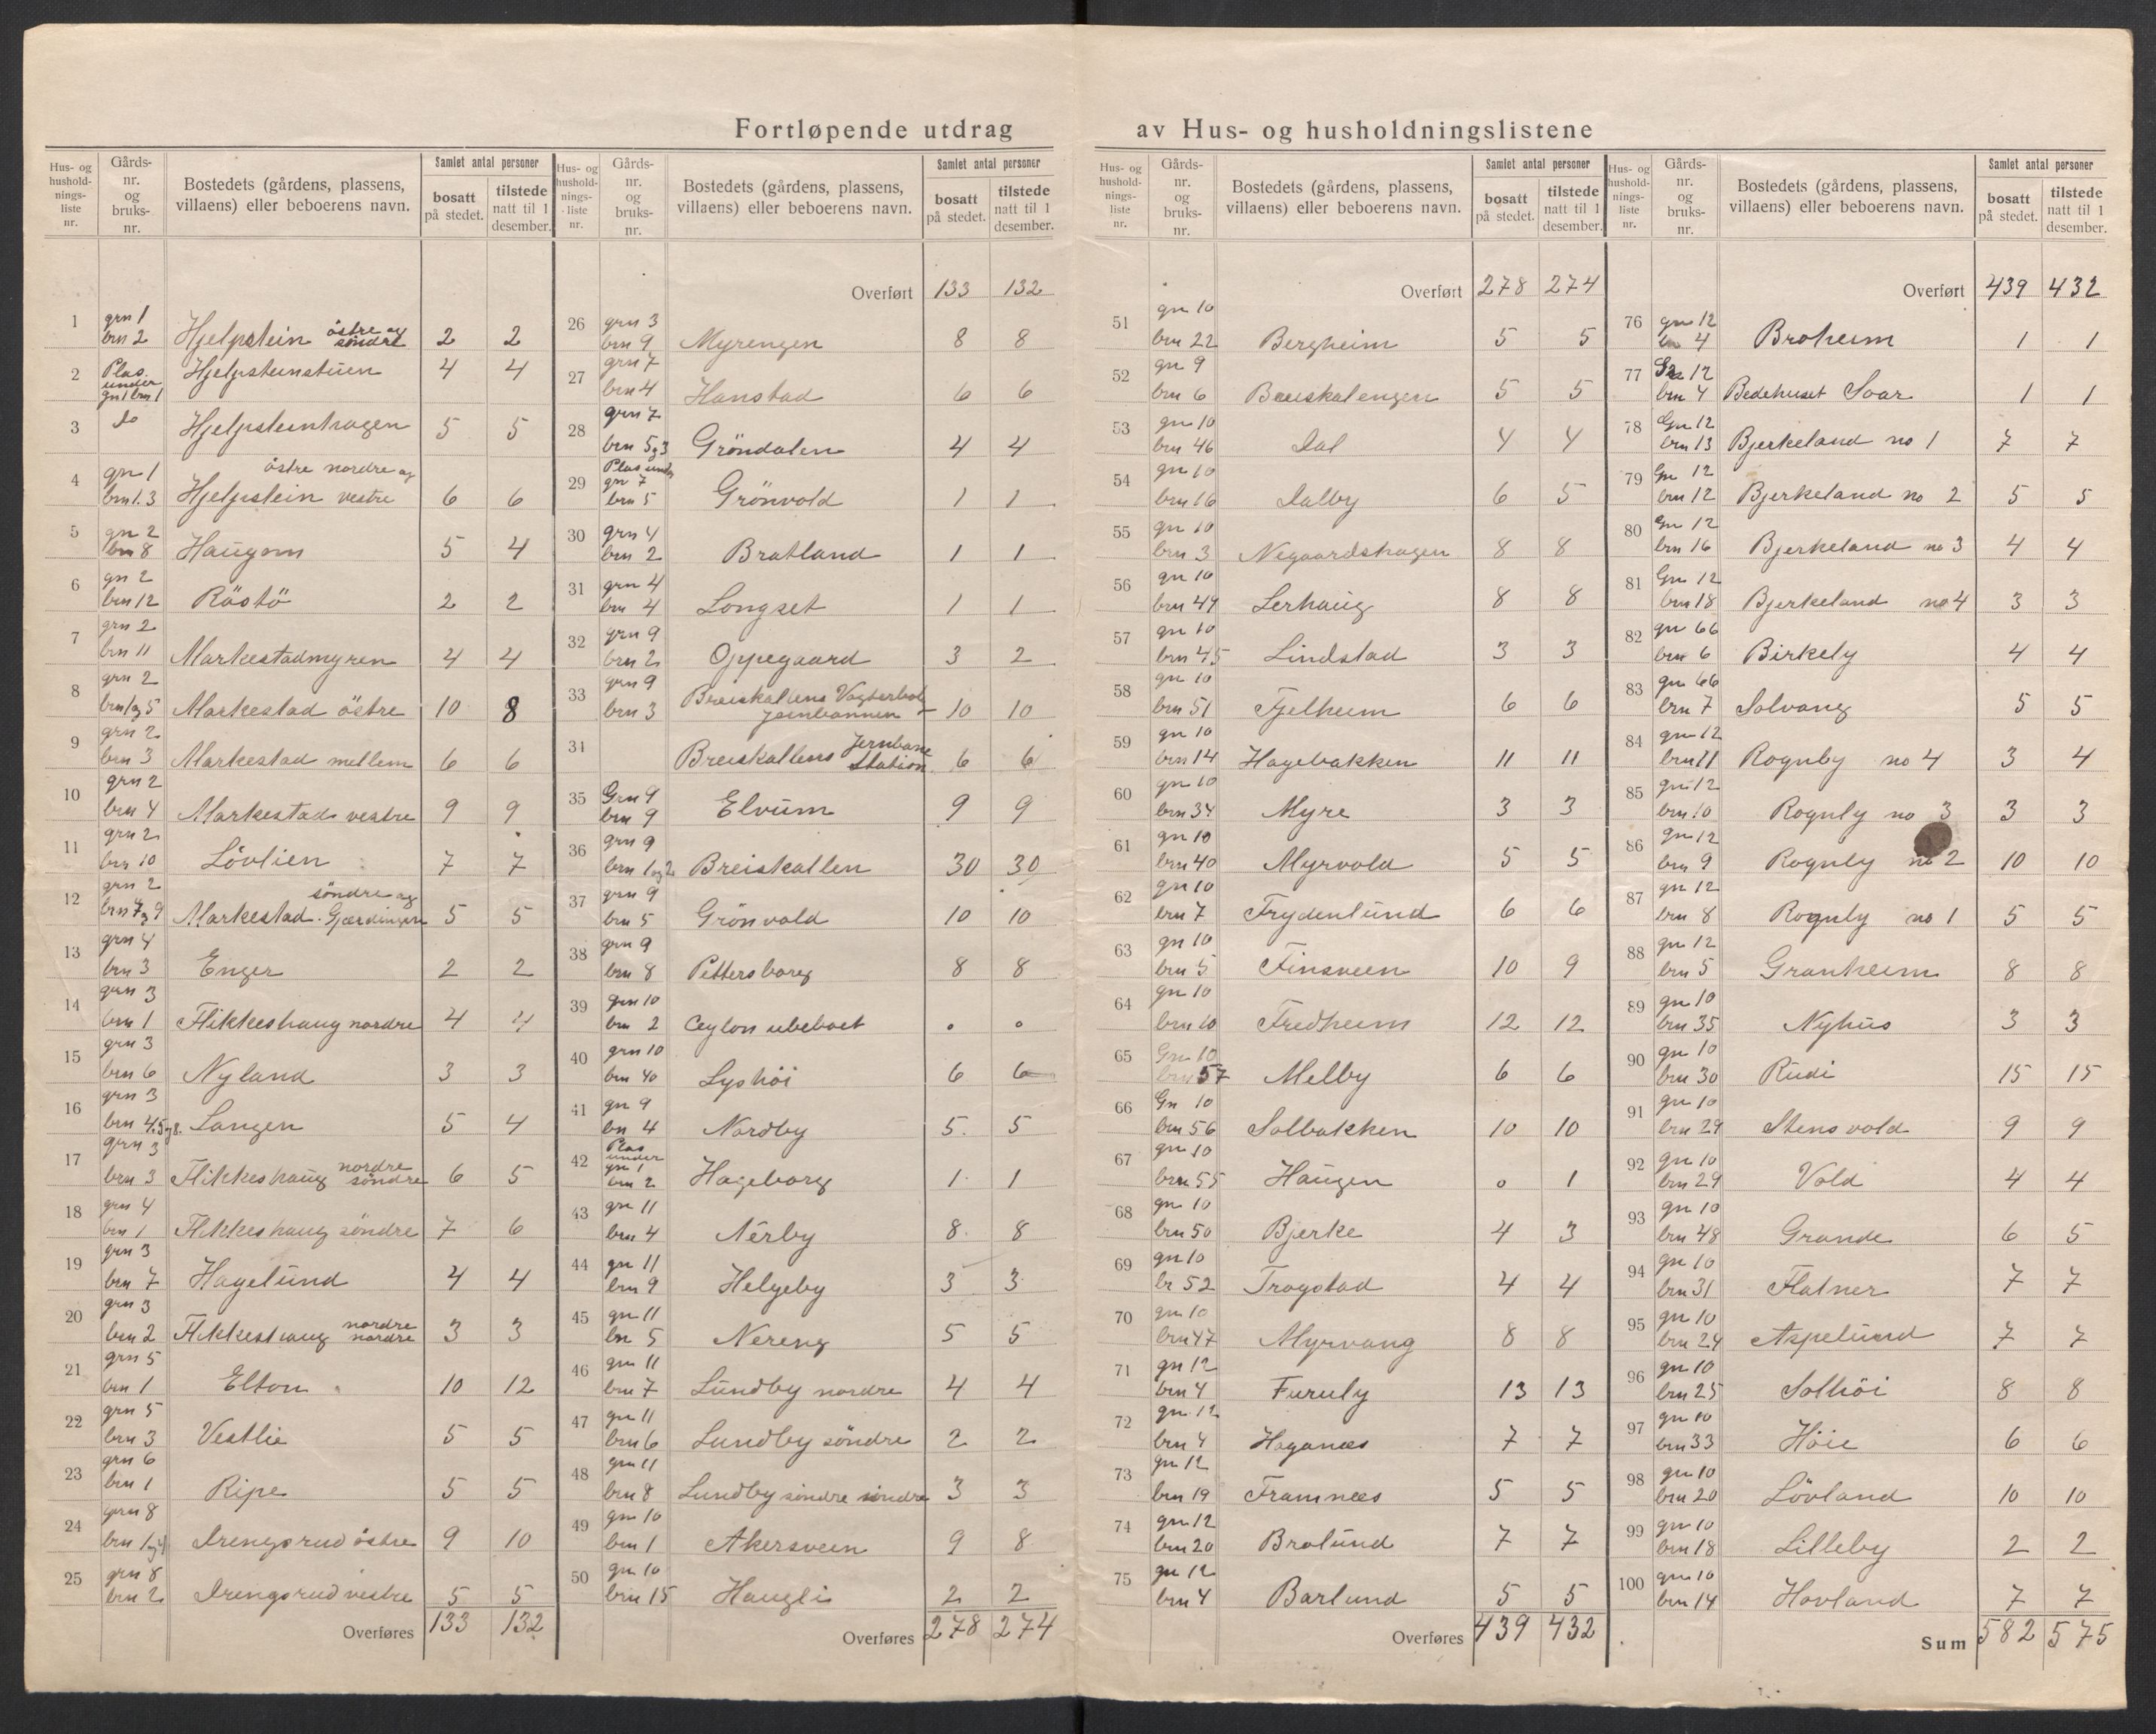 Fortløpende utdrag av Hus- og husholdningslistene
Hus- og husholdnings-liste nr. Gårds-nr. og bruks-nr. Bostedets (gårdens, plassens, villaens) eller beboerens navn. Samlet antal personer bosatt på stedet. tilstede natt til 1 desember.
1 grn 1 brn 2 Hjelpstein östre og söndre 2 2
2 Plas. under gn 1 brn 1 Hjelpsteinstuen 4 4
3 do Hjelpsteinhagen 5 5
4 gn 1 brn 1.3 Hjelpstein östre nordre og vestre 6 6
5 gn 2 brn 8 Haugom 5 4
6 gn 2 brn 12 Röstö 2 2
7 grn 2 brn 11 Markestadmyren 4 4
8 grn 2 brn 1 og 5 Markestad östre 10 8
9 grn 2 brn 3 Markestad mellem 6 6
10 grn 2 brn 4 Markestad vestre 9 9
11 grn 2 brn 10 Lövlien 7 7
12 grn 2 brn 7 og 9 Markestad söndre og Gjærdingen 5 5
13 grn 4 brn 3 Enger 2 2
14 grn 3 brn 1 Flikkeshaug nordre 4 4
15 grn 3 brn 6 Nyland 3 3
16 grn 3 brn 4.5 og 8. Langen 5 4
17 grn 3 brn 3 Flikkeshaug nordre söndre 6 5
18 grn 4 brn 1 Flikkeshaug söndre 7 6
19 grn 3 brn 7 Hagelund 4 4
20 grn 3 brn 2 Flikkeshaug nordre nordre 3 3
21 grn 5 brn 1 Elton 10 12
22 grn 5 brn 3 Vestlie 5 5
23 grn 6 brn 1 Ripe 5 5
24 grn 8 brn 1 og 4 Drengsrud östre 9 10
25 grn 8 brn 2 Drengsrud vestre 5 5
Overføres 133 132
Hus- og husholdnings-liste nr. Gårds-nr. og bruks-nr. Bostedets (gårdens, plassens, villaens) eller beboerens navn. Samlet antal personer bosatt på stedet. tilstede natt til 1 desember.
Overført 133 132
26 grn 3 brn 9 Myrengen 8 8
27 grn 7 brn 4 Hanstad 6 6
28 grn 7 brn 5 og 3 Gröndalen 4 4
29 Plas under gn 7 brn 5 Grönvold 1 1
30 grn 4 brn 2 Bratland 1 1
31 grn 4 brn 4 Longset 1 1
32 grn 9 brn 2 Oppegaard 3 2
33 grn 9 brn 3 Breiskallens Vogterbol Jernbannen 10 10
34 Breiskallens Jernbane Station 6 6
35 Grn 9 brn 9 Elvum 9 9
36 grn 9 brn 1 og 2 Breiskallen 30 30
37 grn 9 brn 5 Grönvold 10 10
38 grn 9 brn 8 Pettersborg 8 8
39 grn 10 brn 2 Ceylon ubeboet 0 0
40 grn 10 brn 40 Lyshöi 6 6
41 gn 9 bn 4 Nordby 5. 5
42 Plas under gn 1 brn 2 Hageborg 1 1
43 grn 11 brn 4 Nérby 8. 8
44 gn 11 brn 9 Helgeby 3 3
45 gn 11 bn 5 Nereng 5 5
46 gn 11 brn 7 Lundby nordre 4 4
47 gn 11 brn 6 Lundby söndre 2 2
48 grn 11 brn 8 Lundby söndre söndre 3 3
49 gn 10 brn 1 Akersveen 9 8
50 gn 10 brn 15 Haugli 2 2
Overføres 278 274
Hus- og husholdnings-liste nr. Gårds-nr. og bruks-nr. Bostedets (gårdens, plassens, villaens) eller beboerens navn. Samlet antal personer bosatt på stedet. tilstede natt til 1 desember.
Overført 278 274
51 gn 10 brn 22 Bergheim 5 5
52 gn 9 brn 6 Breiskalengen 5 5
53 gn 10 brn 46 Dal 4 4
54 gn 10 brn 16 Dalby 6 5
55 gn 10 brn 3 Negaardshagen 8 8
56 gn 10 brn 44 Lerhaug 8 8
57 gn 10 brn 45 Lindstad 3 3
58 gn 10 brn 51 Fjelheim 6 6
59 gn 10 brn 14 Hagebakken 11 11
60 gn 10 brn 34 Myre 3 3
61 gn 10 brn 40 Myrvold 5 5
62 gn 10 brn 7 Frydenlund 6 6
63 gn 10 brn 5 Finsveen 10 9
64 gn 10 brn 10 Fredheim 12 12
65 Gn 10 brn 57 Melby 6 6
66 Gn 10 brn 56 Solbakken 10 10
67 gn 10 brn 55 Haugen 0 1
68 gn 10 brn 50 Bjerke 4 3
69 gn 10 br 52 Trogstad 4 4
70 gn 10 brn 47 Myrvang 8 8
71 gn 12 brn 4 Furuly 13 13
72 gn 12 brn 4 Haganæs 7 7
73 gn 12 brn 19 Framnæs 5 5
74 gn 12 brn 20 Brolund 7 7
75 gn 12 brn 4 Barlund 5 5
Overføres 439 432
Hus- og husholdnings-liste nr. Gårds-nr. og bruks-nr. Bostedets (gårdens, plassens, villaens) eller beboerens navn. Samlet antal personer bosatt på stedet. tilstede natt til 1 desember.
Overført 439 432
76 gn 12 bn 4 Broheim 1 1
77 Gn 12 brn 4 Bedehuset Soar 1 1
78 Gn 12 brn 13 Bjerkeland no 1 7 7
79 Gn 12 brn 12 Bjerkeland no 2 5 5
80 Gn 12 brn 16 Bjerkeland no 3 4 4
81 Gn 12 brn 18 Bjerkeland no 4 3 3
82 gn 66 brn 6 Birkely 4 4
83 gn 66 brn 7 Solvang 5 5
84 gn 12 brn 11 Rognby no 4 3 4
85 gn 12 brn 10 Rognly no 3 3 3
86 gn 12 brn 9 Rognly no 2 10 10
87 gn 12 brn 8 Rognly no 1 5 5
88 gn 12 brn 5 Granheim 8 8
89 gn 10 brn 35 Nyhus 3 3
90 gn 10 brn 30 Rudi 15 15
91 gn 10 brn 29 Stensvold 9 9
92 gn 10 brn 29 Vold 4 4
93 gn 10 brn 48 Grande 6 5
94 gn 10 brn 31 Flatner 7 7
95 gn 10 brn 24 Aspelund 7 7
96 gn 10 brn 25 Solhöi 8 8
97 gn 10 brn 33 Höie 6 6
98 gn 10 brn 20 Lövland 10 10
99 gn 10 brn 18 Lilleby 2 2
100 gn 10 brn 14 Hovland 7 7
Sum 582 575